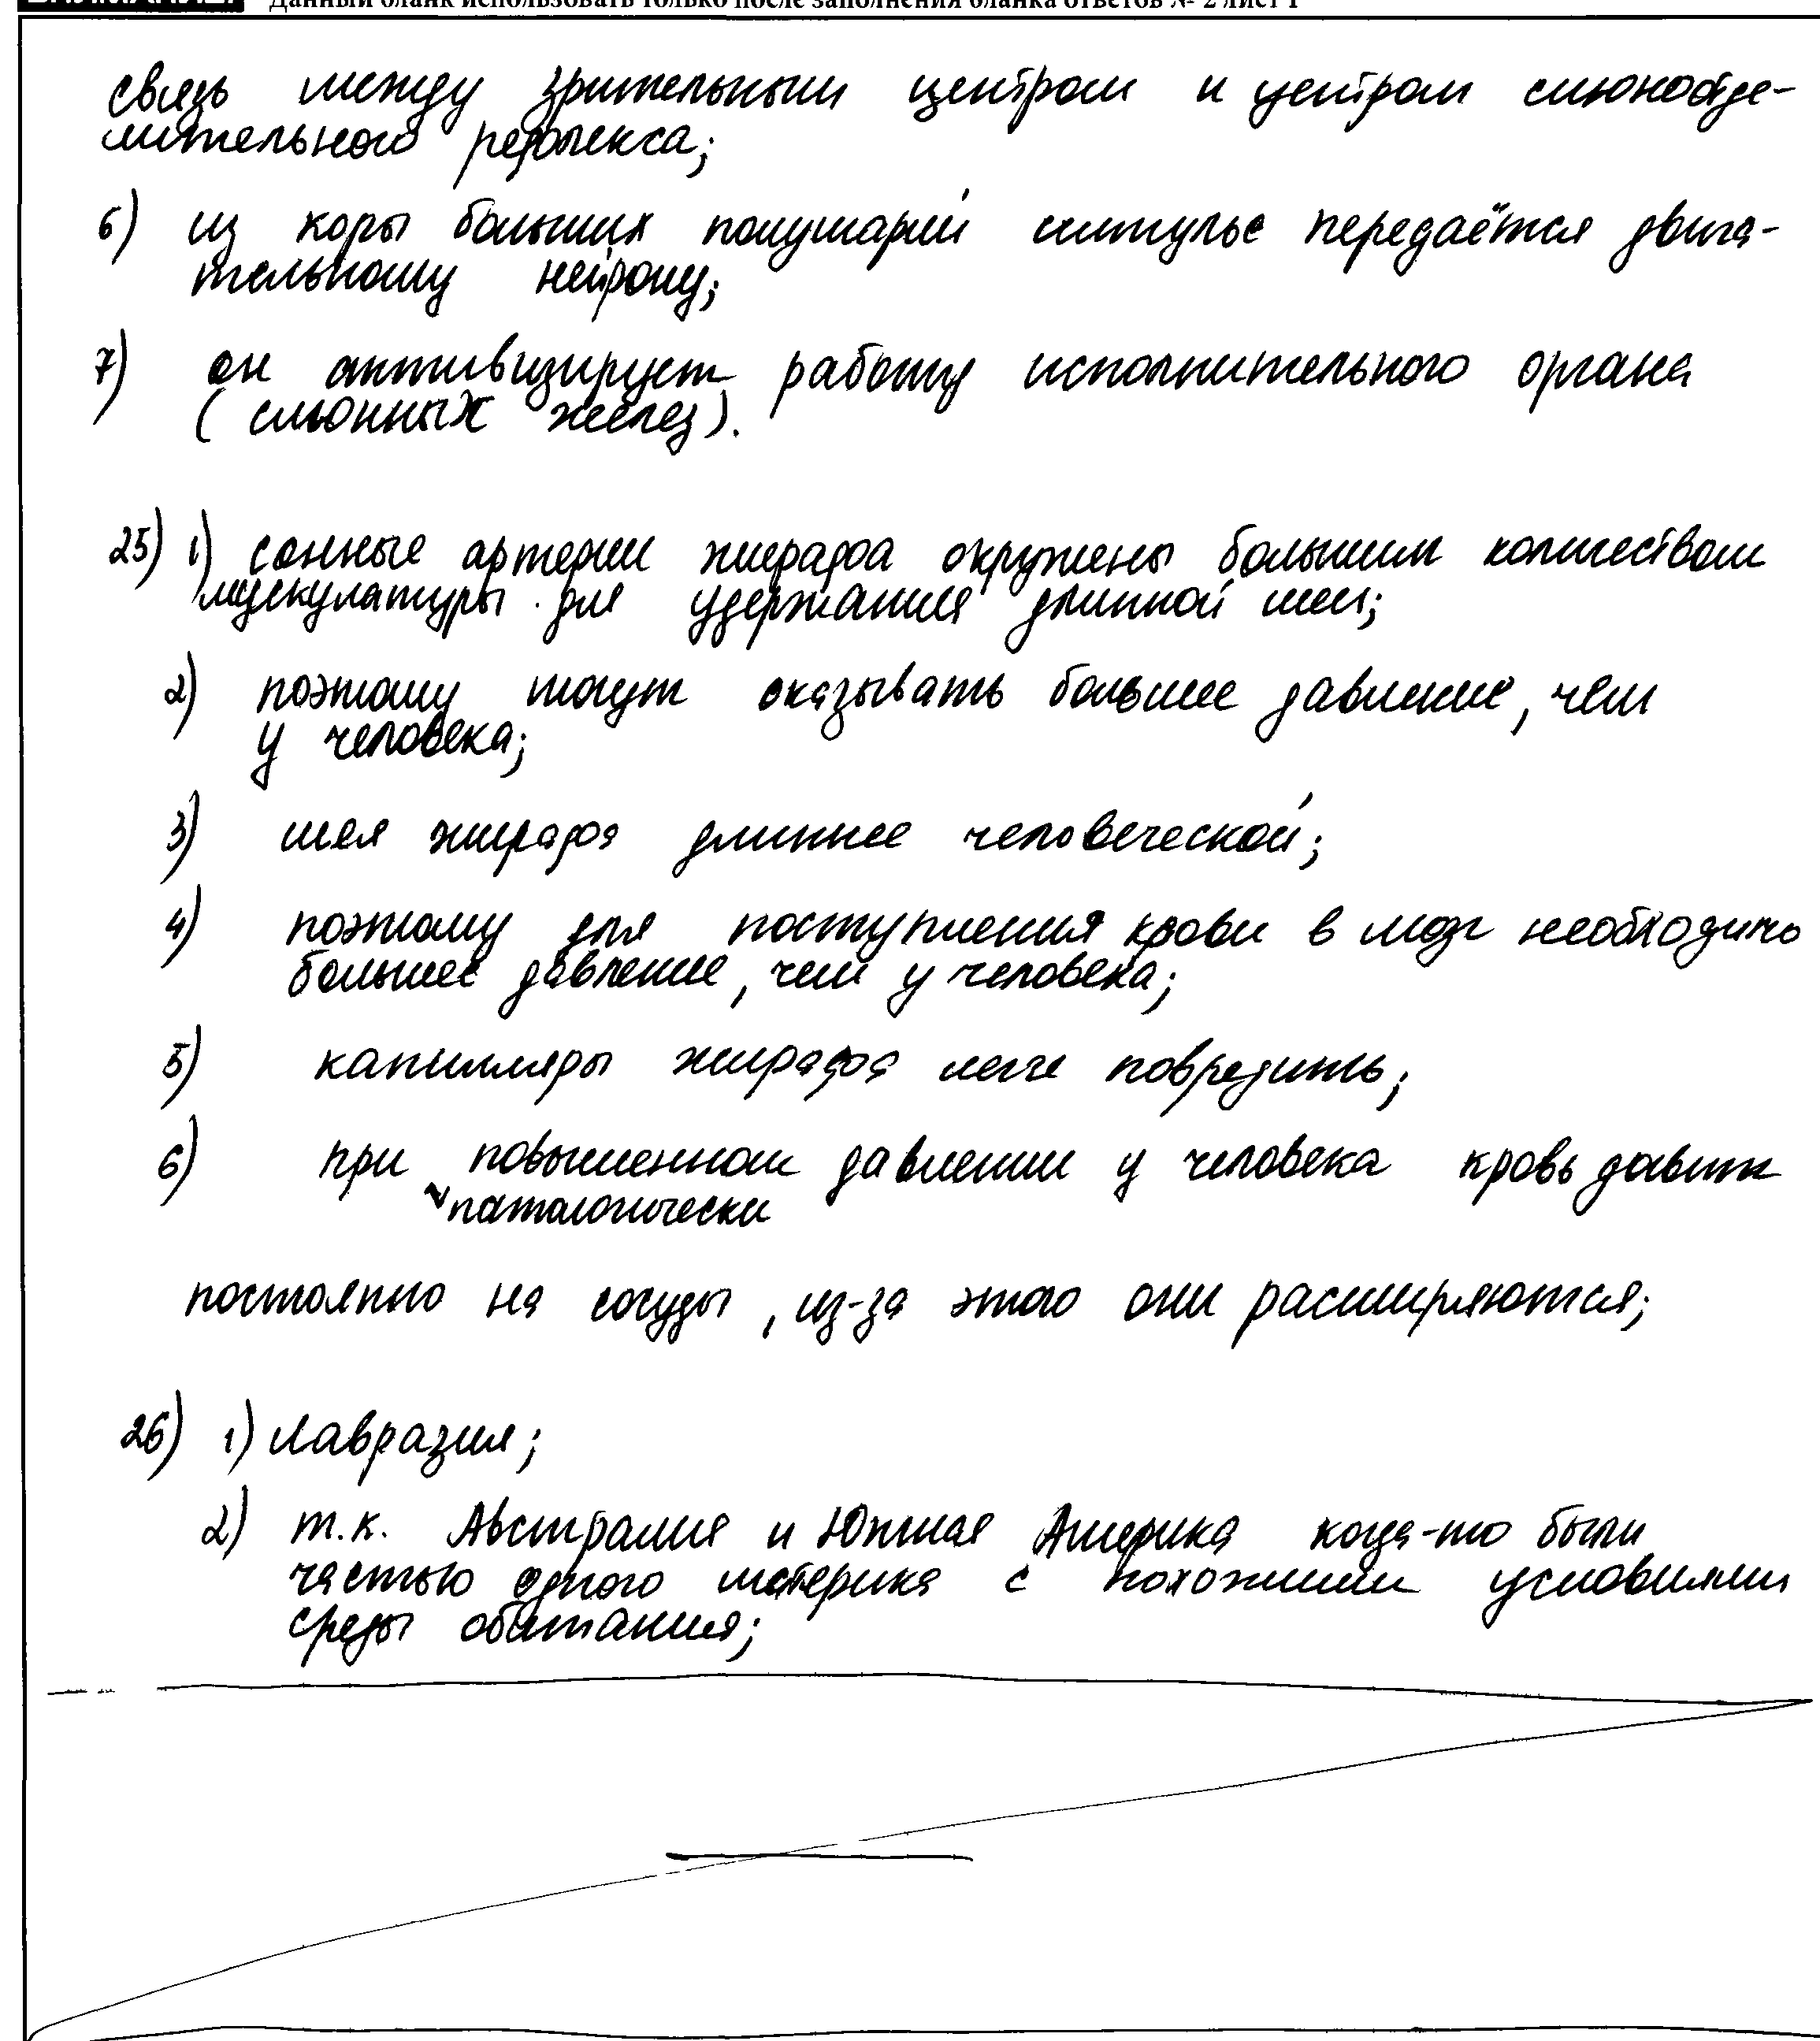 Данный бланк использовать только после заполнения бланка ответов № 2 лист 1
связь между зрительным центром и центром слюноотде-
лительного рефлекса;
6) из коры больших полушарий импульс передаётся двига-
тельному нейрону;
7) он активизирует работу исполнительного органа
(слюнных желез).
25) 1) сонные артерии жирафа окружены большим количеством
мускулатуры для удержания длинной шеи;
2) поэтому могут оказывать большее давление, чем
у человека;
3) шея жирафа длиннее человеческой;
4) поэтому для поступления крови в мозг необходимо
большее давление, чем у человека;
5) капилляры жирафа легче повредить;
6) при повышенном давлении у человека кровь давит
патологически
постоянно на сосуды, из-за этого они расширяются;
26) 1) Лавразия;
2) т.к. Австралия и Южная Америка когда-то были
частью одного материка с похожими условиями
среды обитания;